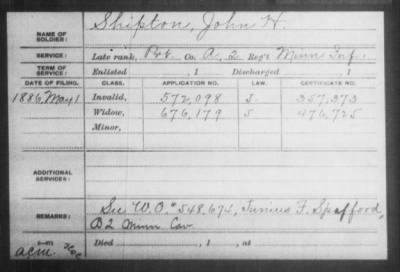 NAME OF SOLDIER: Shipton, John H.
SERVICE: Late rank, Pvt. Co. A, 2 Reg't Minn Inf.
TERM OF SERVICE: Enlisted , 1 Discharged , 1
DATE OF FILING. CLASS. APPLICATION NO. LAW. CERTIFICATE NO.
1886, May 1 Invalid, 572,098 J. 357,373
Widow, 676,179 J 476,725
Minor,
ADDITIONAL SERVICES:
REMARKS: See W.O. # 548,674, Junius F. Spafford,
B 2 Minn Cav
Died , 1 , at
acm